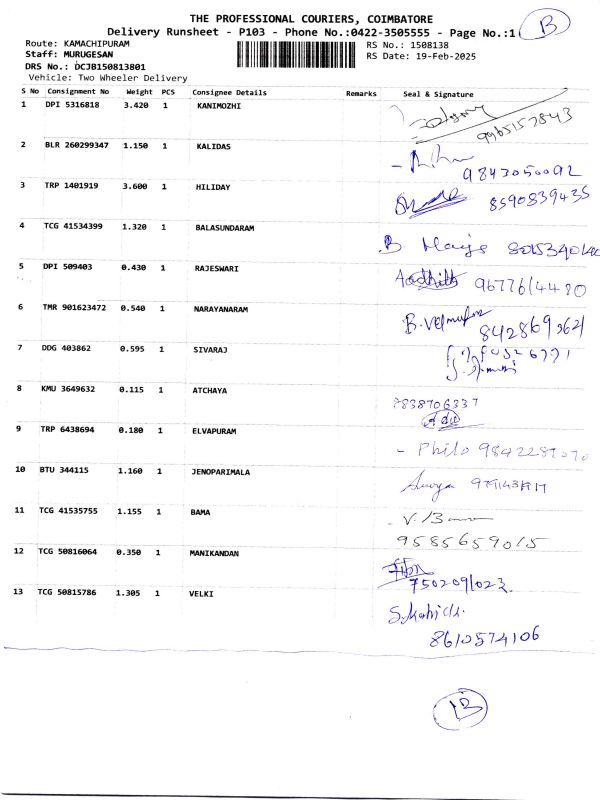 THE PROFESSIONAL COURIERS, COIMBATORE
Delivery Runsheet - P103 - Phone No.:0422-3505555 - Page No.:1 B
Route: KAMACHIPURAM RS No.: 1508138
Staff: MURUGESAN RS Date: 19-Feb-2025
DRS No.: DCJB150813801
Vehicle: Two Wheeler Delivery
S No Consignment No Weight PCS Consignee Details Remarks Seal & Signature
1 DPI 5316818 3.420 1 KANIMOZHI
9965157843
2 BLR 260299347 1.150 1 KALIDAS
9843050092
3 TRP 1401919 3.600 1 HILIDAY 8590839435
4 TCG 41534399 1.320 1 BALASUNDARAM
B
5 DPI 509403 0.430 1 RAJESWARI
9677614480
6 TMR 901623472 0.540 1 NARAYANARAM
7 DDG 403862 0.595 1 SIVARAJ
8 KMU 3649632 0.115 1 ATCHAYA
9 TRP 6438694 0.180 1 ELVAPURAM
- Philo
10 BTU 344115 1.160 1 JENOPARIMALA
11 TCG 41535755 1.155 1 BAMA
9585659015
12 TCG 50816064 0.350 1 MANIKANDAN
7502091023
13 TCG 50815786 1.305 1 VELKI
8610574106
13